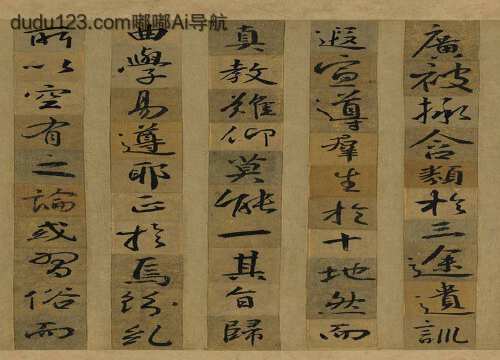 dudu123.com 嘟嘟Ai导航
廣被拯含類於三途遺訓
遐宣導羣生於十地然而
真教難仰莫能一其旨歸
曲學易遵耶正於焉紛糺
所以空有之論或習俗而